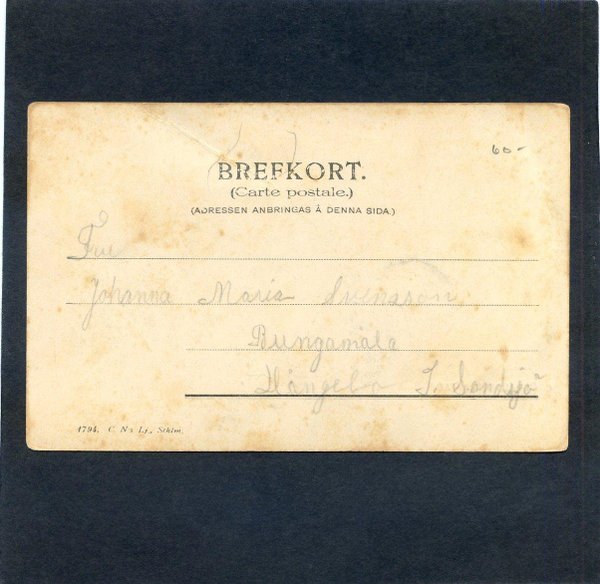 60-
BREFKORT.
(Carte postale.)
(ADRESSEN ANBRINGAS Å DENNA SIDA.)
Fru
Johanna Maria Svensson
Bungamåla
Långebo S. Sandsjö
1794. C. N:s Lj., Sthlm.